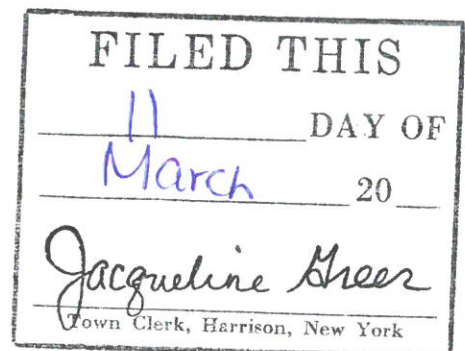 FILED THIS
11 DAY OF
March 20
Jacqueline Greer
Town Clerk, Harrison, New York